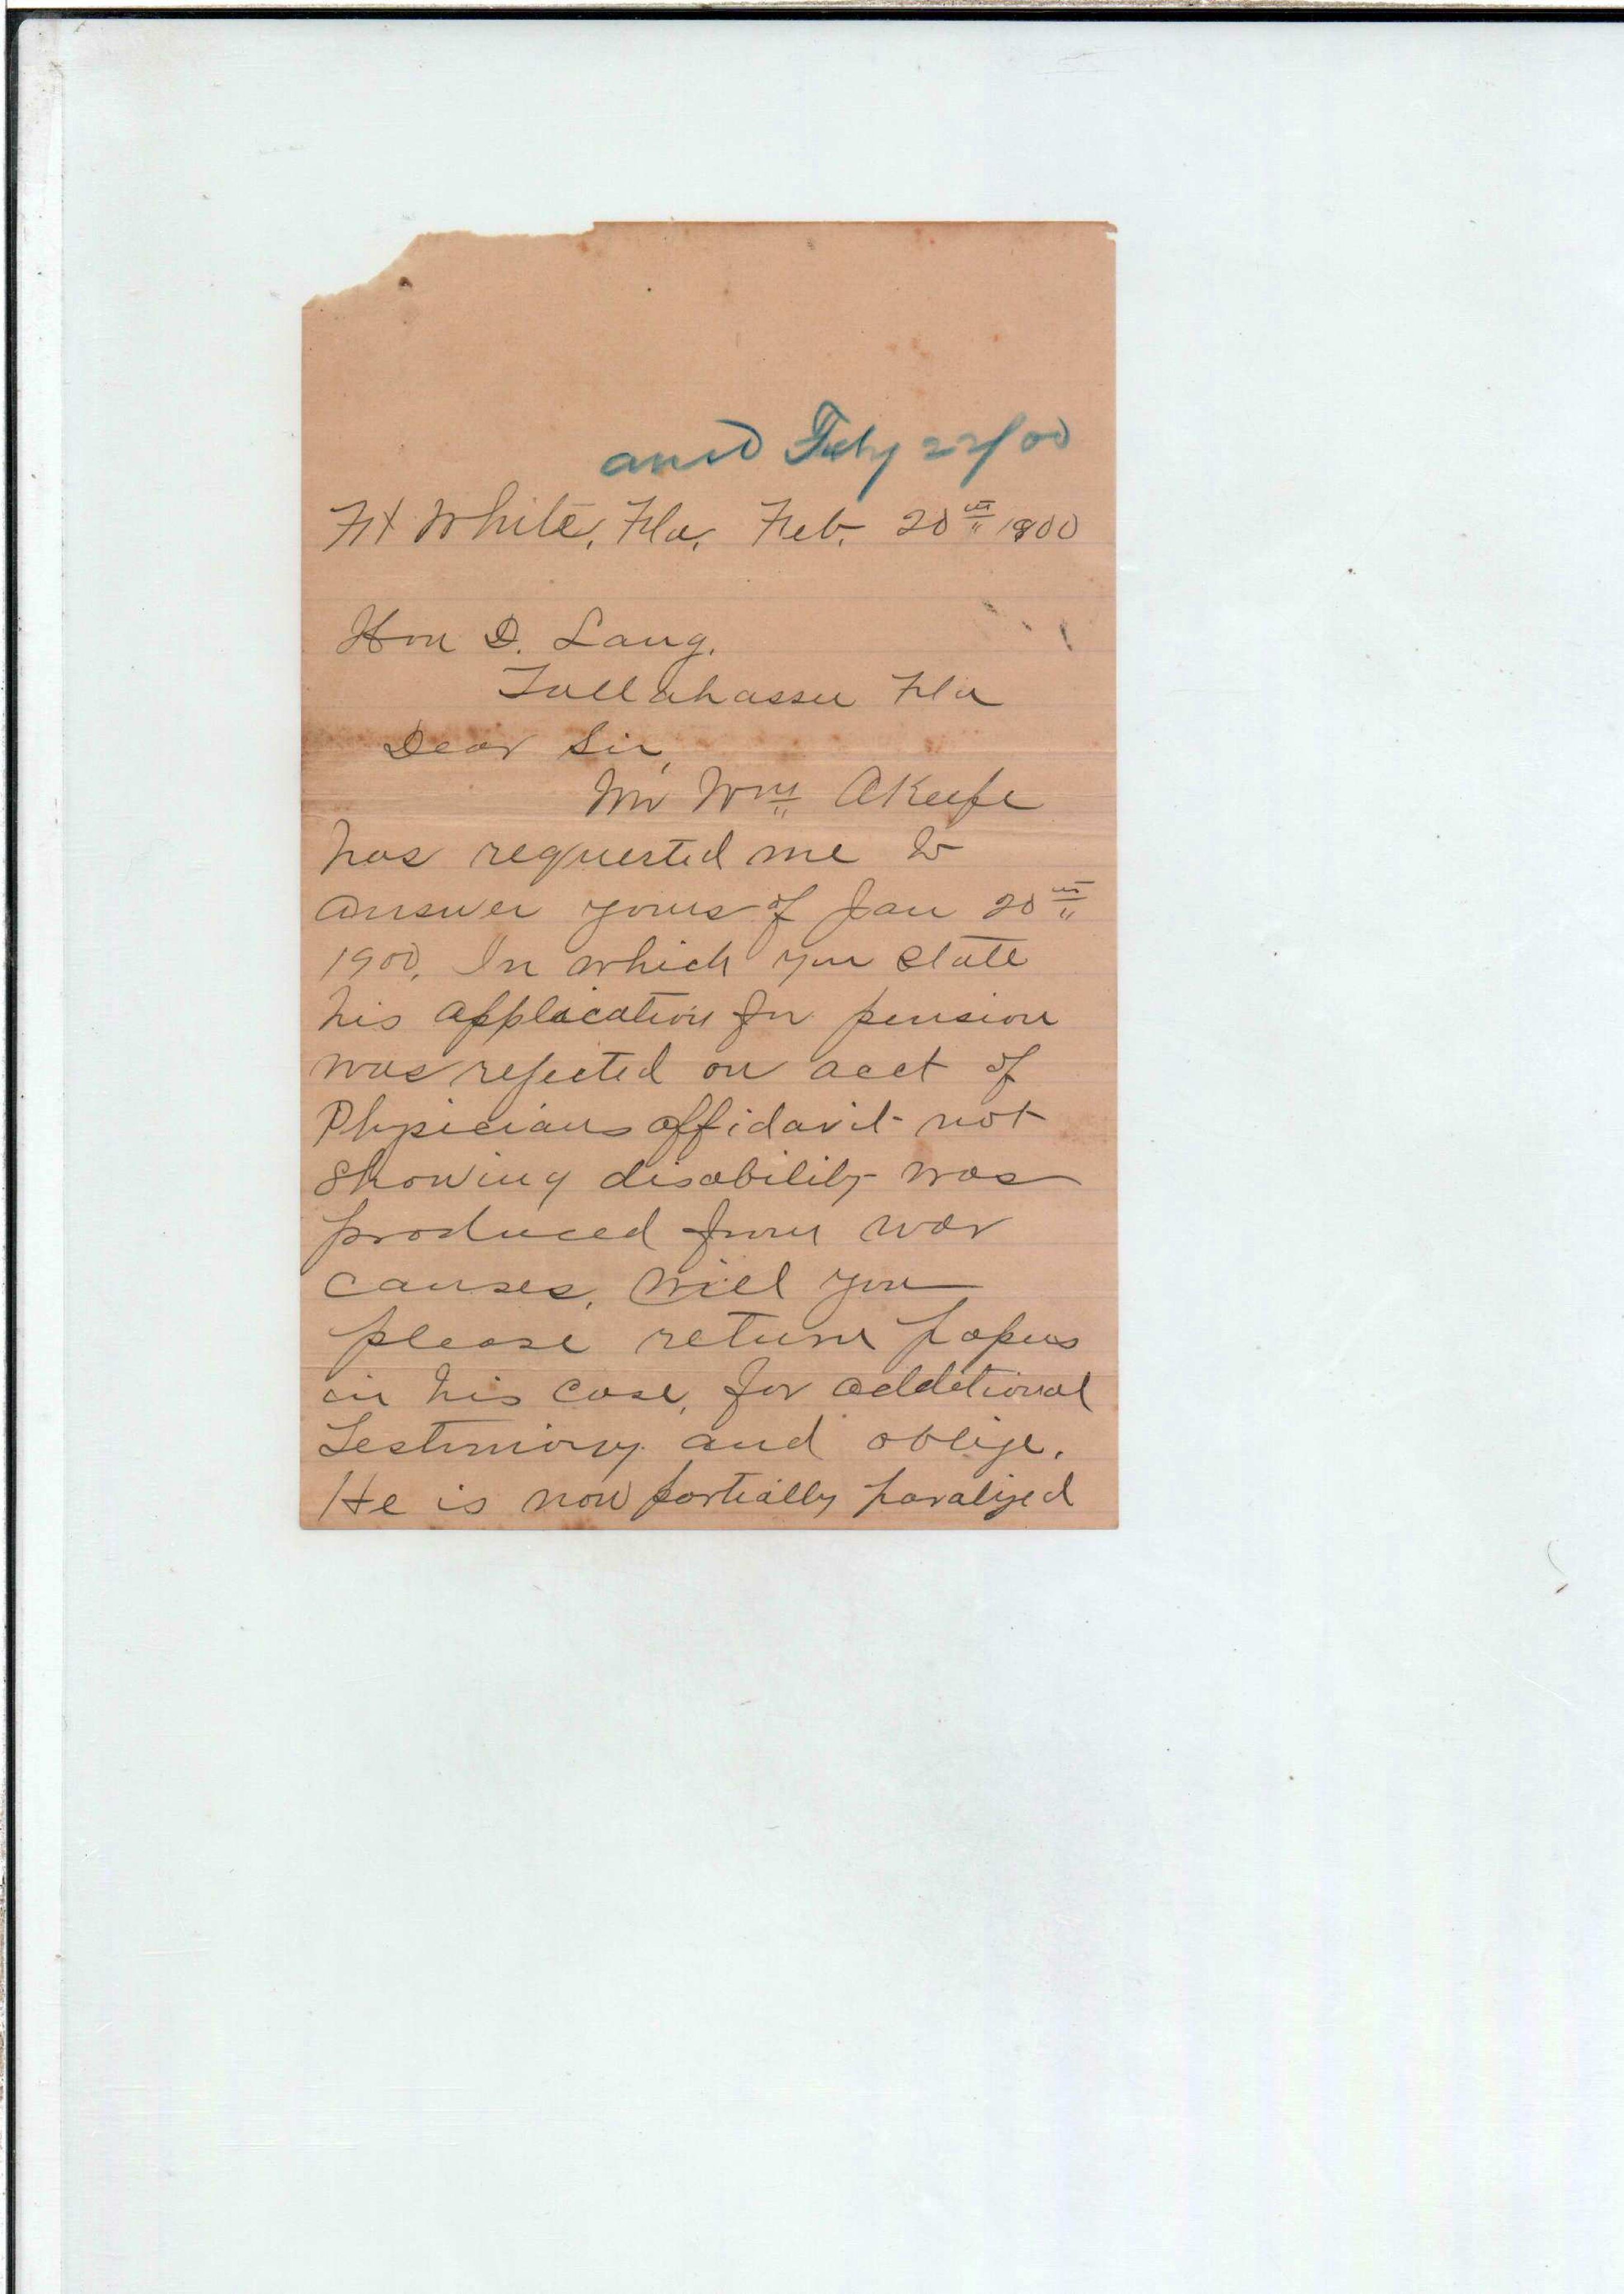 ansd Feby 22/00
Ft White, Fla, Feb. 20th 1900
Hon D. Lang.
Tallahassee Fla
Dear Sir,
Mr Wm AKeefe
has requested me to
answer yours of Jan 20th
1900, In which you state
his application for pension
was rejected on acct of
Physicians affidavit not
showing disability was
produced from war
causes, Will you
please return papers
in his case, for additional
Testimony and oblige.
He is now partially paralized